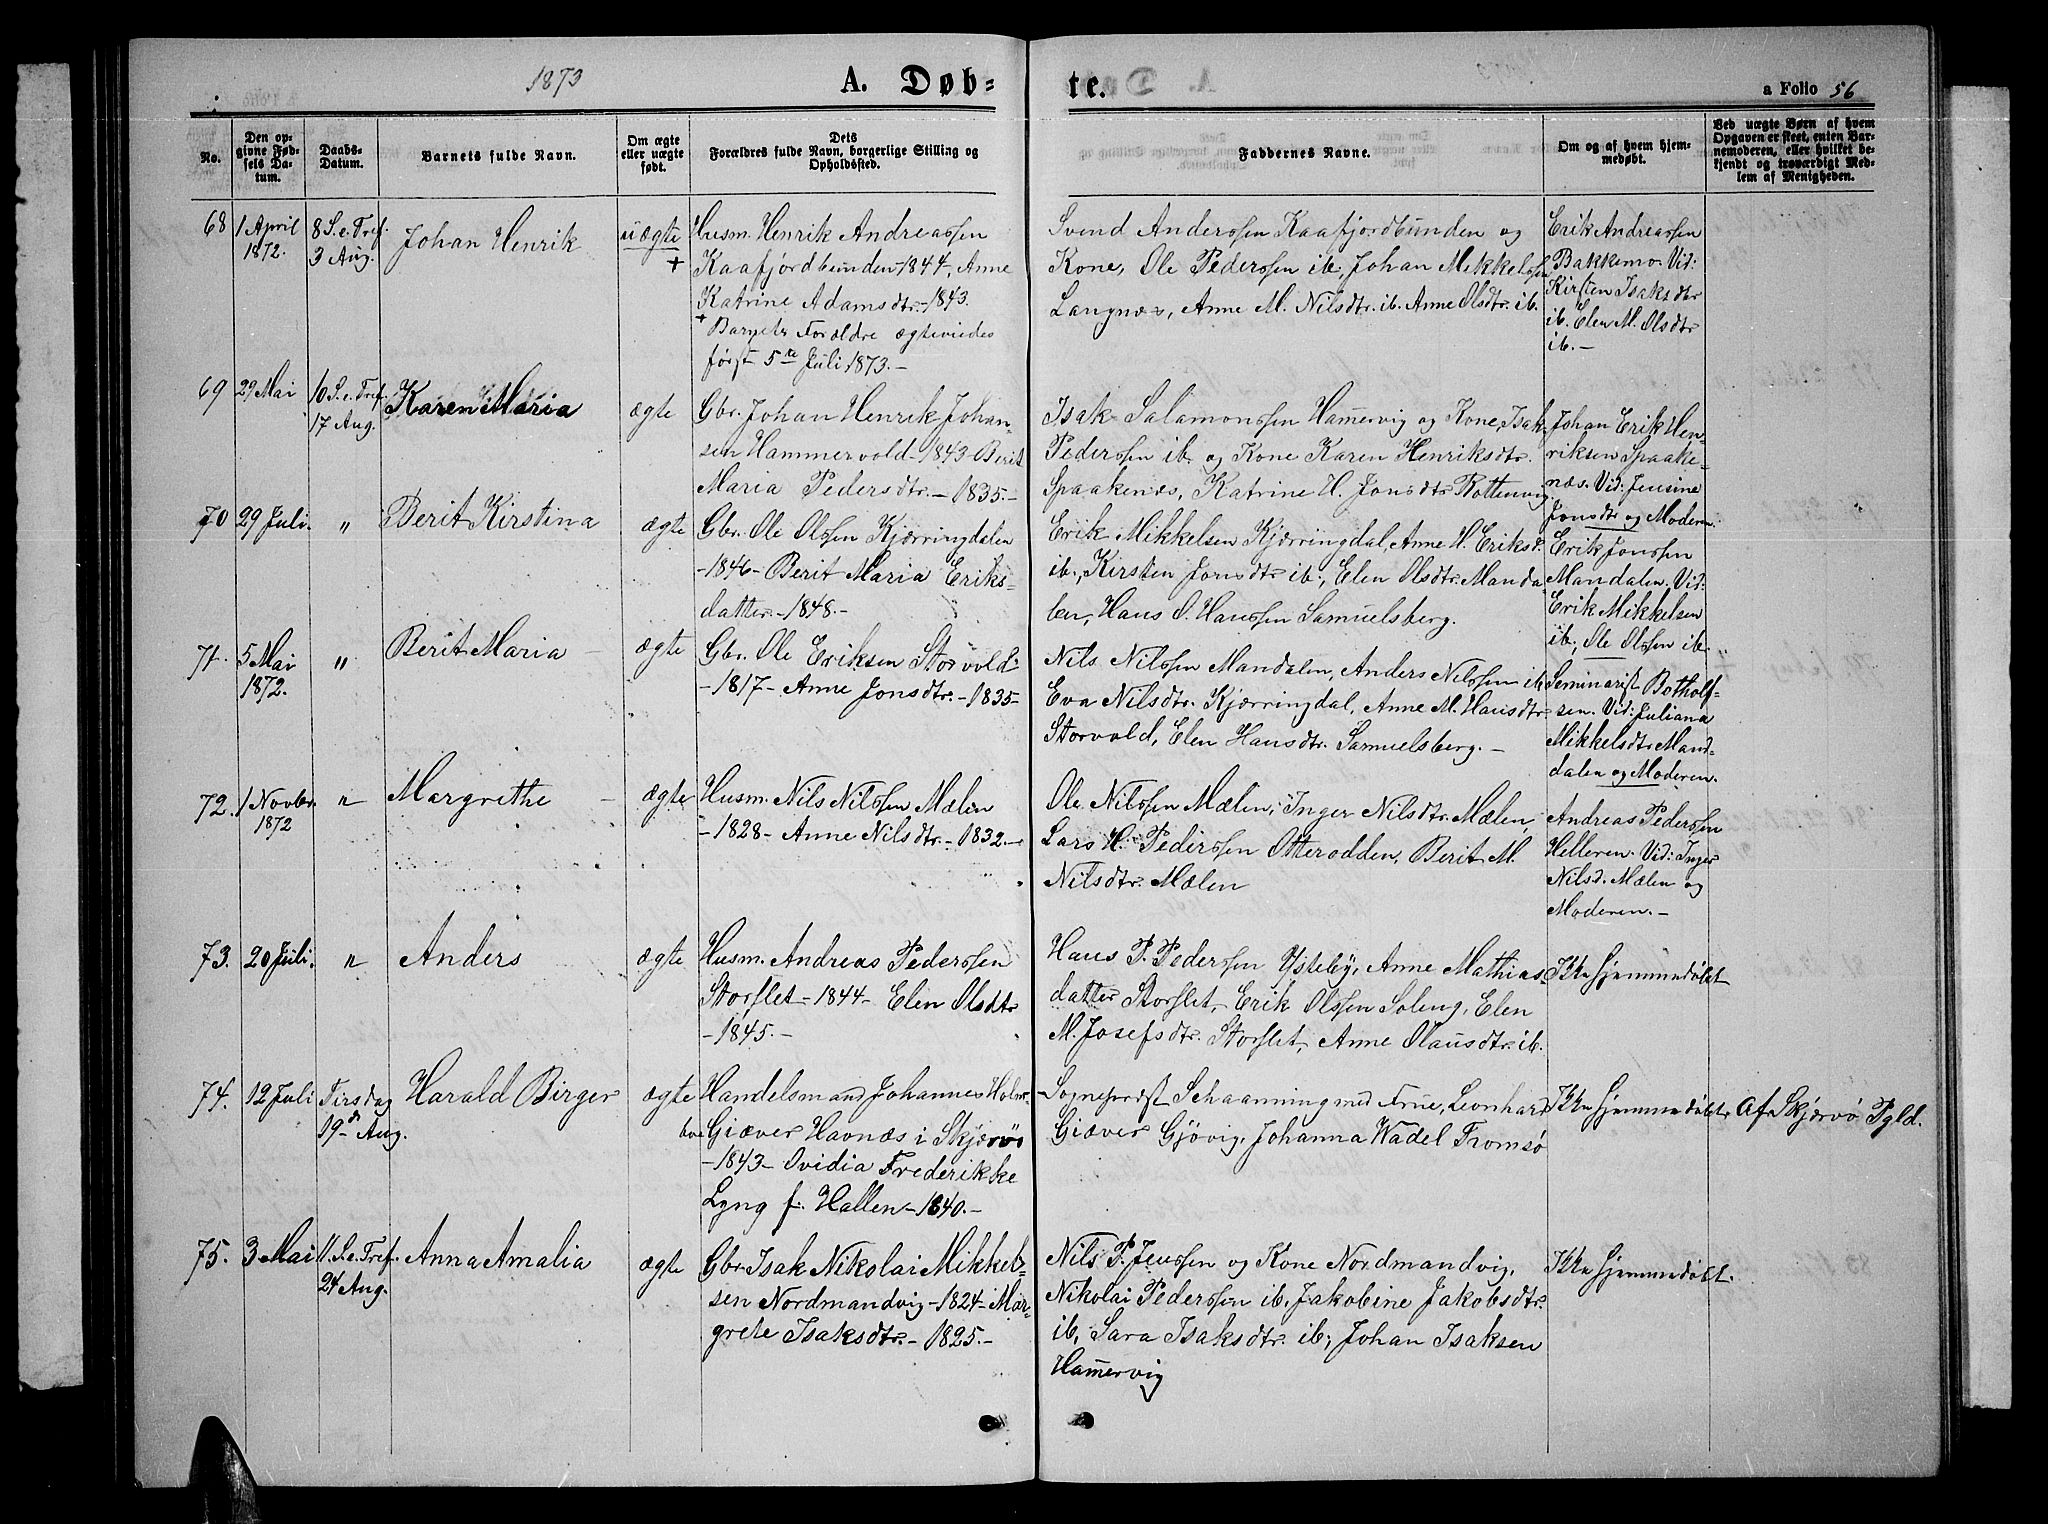 1873
A. Døb=
te.
a Folio 56
No.
Den op=
givne Fød=
sels Da=
tum.
Daabs=
Datum.
Barnets fulde Navn.
Om ægte
eller uægte
født.
Dets
Forældres fulde Navn, borgerlige Stilling og
Opholdssted.
Faddernes Navne.
Om og af hvem hjem=
medøbt.
Ved uægte Børn af hvem
Opgaven er skeet, enten Bar=
nemoderen, eller hvilket be=
kjendt og troværdigt Med=
lem af Menigheden.
68
1 April
1872.
8 S. e. Tref.
3 Aug.
Johan Henrik
uægte
+
Husm. Henrik Andreassen
Kaafjordbunden - 1844, Anne
Katrine Adamsdtr. - 1843.
+ Barnets Forældre ægteviedes
først 5te Juli 1873. -
Svend Anderssen Kaafjordbunden og
Kone, Ole Pederssen ib., Johan Mikkelsen
Langnæs, Anne M. Nilsdtr. ib. Anne Olsdtr. ib.
Erik Andreassen
Bakkemo. Vid:
Kirsten Isaksdtr
ib. Elen M. Olsdtr
ib. -
69
29 Mai
10 S. e. Tref.
17 Aug.
Karen Maria
ægte
Gbr. Johan Henrik Johan-
sen Hammervold - 1843 - Berit
Maria Pedersdtr. - 1835. -
Isak Salamonssen Hamervig og Kone, Isak
Pederssen ib. og Kone Karen Henriksdtr.
Spaakenæs, Katrine H. Jonsdtr Rottenvig.
Johan Erik Hen-
riksen Spaake-
næs. Vid: Jensine
Jonsdtr og Moderen.
70
29 Juli.
"
Berit Kirstina
ægte
Gbr. Ole Olssen Kjærringdalen
- 1846 - Berit Maria Eriks-
datter. - 1848. -
Erik Mikkelsen Kjærringdal, Anne H. Eriksd.
ib., Kirsten Jonsdtr ib., Elen Olsdtr. Manda
len, Hans O. Hanssen Samuelsberg.
Erik Jonssen
Mandalen. Vid:
Erik Mikkelsen
ib., Ole Olssen ib.
71.
5 Mai
1872.
"
Berit Maria -
ægte
Gbr. Ole Eriksen Storvold.
- 1817 - Anne Jonsdtr. - 1835 -
Nils Nilssen Mandalen, Anders Nilssen ib.
Eva Nilsdtr. Kjærringdal, Anne M. Hansdtr.
Storvold, Elen Hansdtr. Samuelsberg. -
Seminarist Botholf-
sen. Vid: Juliana
Mikkelsdtr Mand-
dalen og Moderen.
72.
1 Novbr.
1872
"
Margrethe -
ægte
Husm. Nils Nilssen Mælen
- 1828 - Anne Nilsdtr. - 1832. -
Ole Nilssen Mælen, Inger Nilsdtr. Mælen,
Lars H. Pederssen Otterodden, Berit M.
Nilsdtr. Mælen
Andreas Pederssen
Helleren. Vid: Inger
Nilsd. Mælen og
Moderen. -
73.
20 Juli.
"
Anders
ægte
Husm. Andreas Pederssen
Storslet - 1844 - Elen Olsdtr
- 1845. -
Hans P. Pederssen Ysteby, Anne Mathias-
datter Storslet, Erik Olssen Soleng, Elen
M. Josefsdtr. Storslet, Anne Olausdtr. ib.
Ikke hjemmedøbt
74.
12 Juli
Tirsdag
19de Aug.
Harald Birger
ægte
Handelsmand Johannes Holm-
boe Giæver Havnæs i Skjærvø
- 1843 - Ovidia Frederikke
Lyng f. Hallen - 1840. -
Sogneprest Schaanning med Frue, Leonhard
Giæver Gjövig, Johanna Wadel Tromsø
Ikke hjemmedøbt.
Af Skjærvø Pgld.
75.
3 Mai
11. S. e. Tref.
24 Aug.
Anna Amalia
ægte
Gbr. Isak Nikolai Mikkel-
sen Nordmandvig - 1824 - Mar-
grete Isaksdtr. - 1825. -
Nils P. Jenssen og Kone Nordmandvig,
Nikolai Pederssen ib. Jakobine Jakobsdtr.
ib, Sara Isaksdtr. ib., Johan Isaksen
Hamervig
Ikke hjemmedøbt.